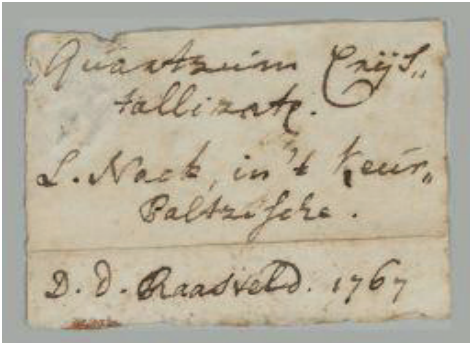 Quartzum Crijs„
tallizatq.
L. Nack, in't Keur„
Paltzische.
D. d. Raasveld. 1767